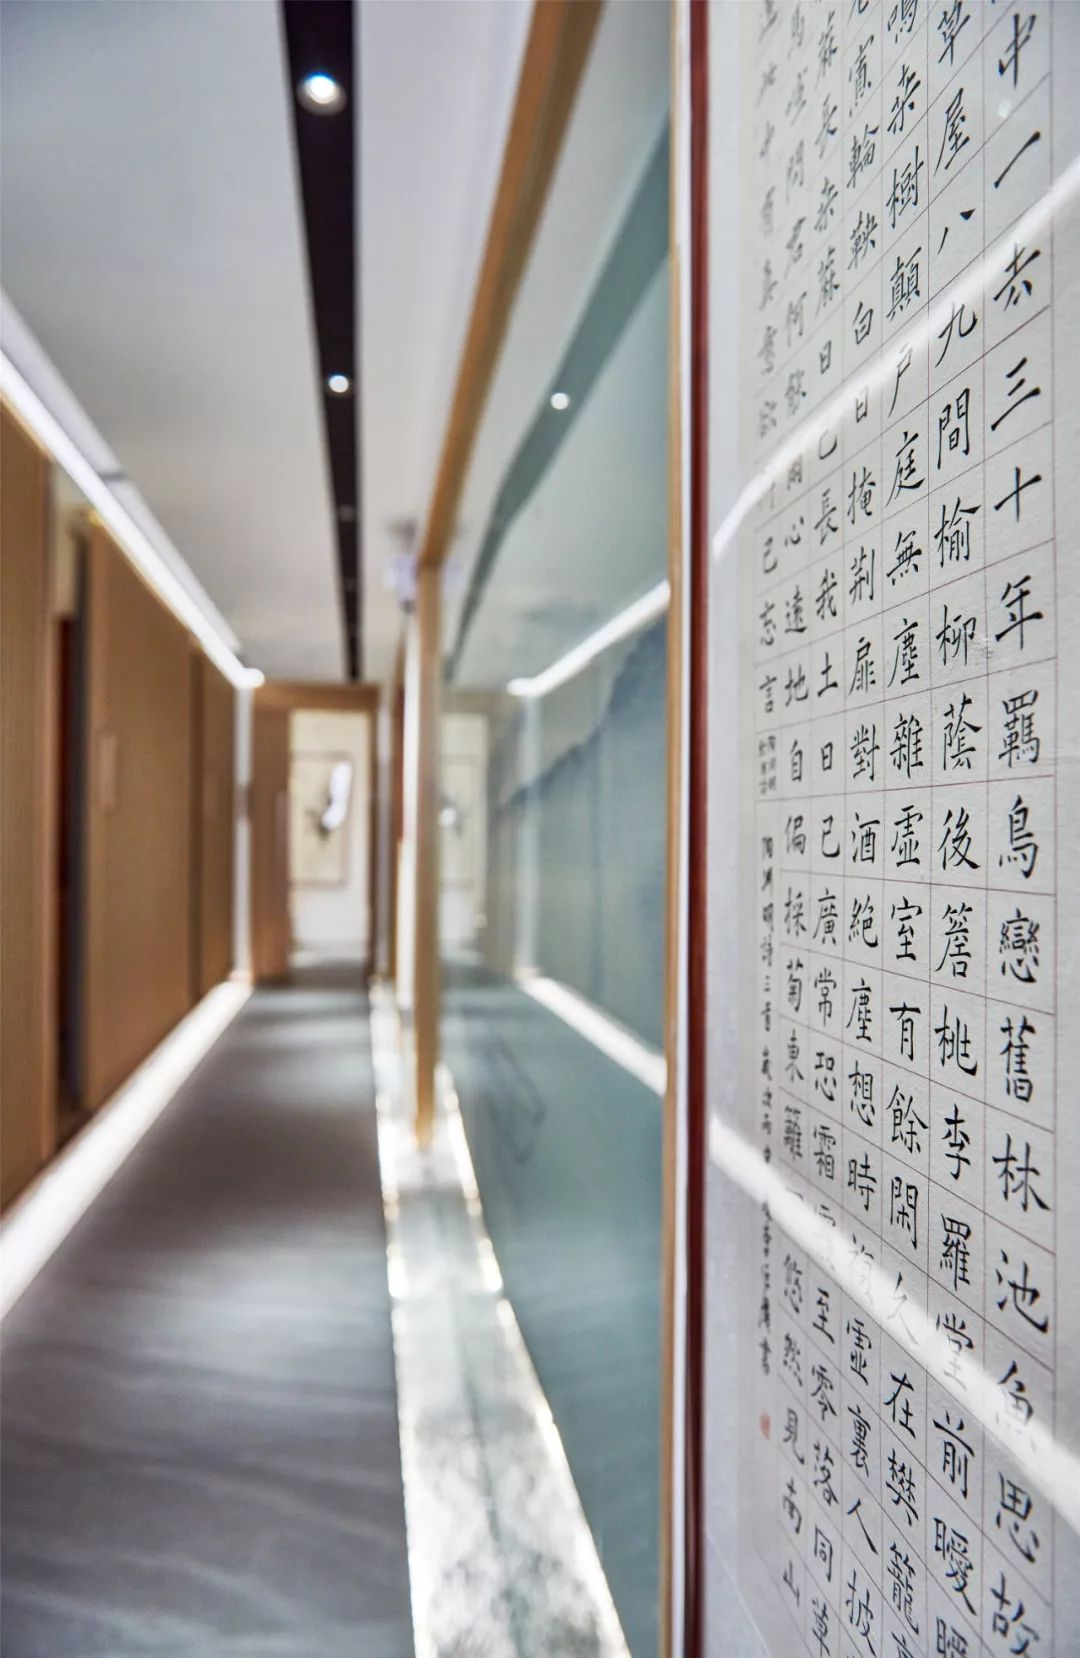 中一去三十年羈鳥戀舊林池魚思故
草屋八九間榆柳蔭後簷桃李羅堂前曖曖
鳴桑樹顛戶庭無塵雜虛室有餘閑久在樊籠
寡輪鞅白日掩荊扉對酒絕塵想時複虛裏人披
蔴長桑蔴日已長我土日已廣常恐霜霰至零落同草
馬喧問君何能爾心遠地自偏採菊東籬下悠然見南山
還此中有真意欲辨已忘言
陶淵明詩三首歲次丙申